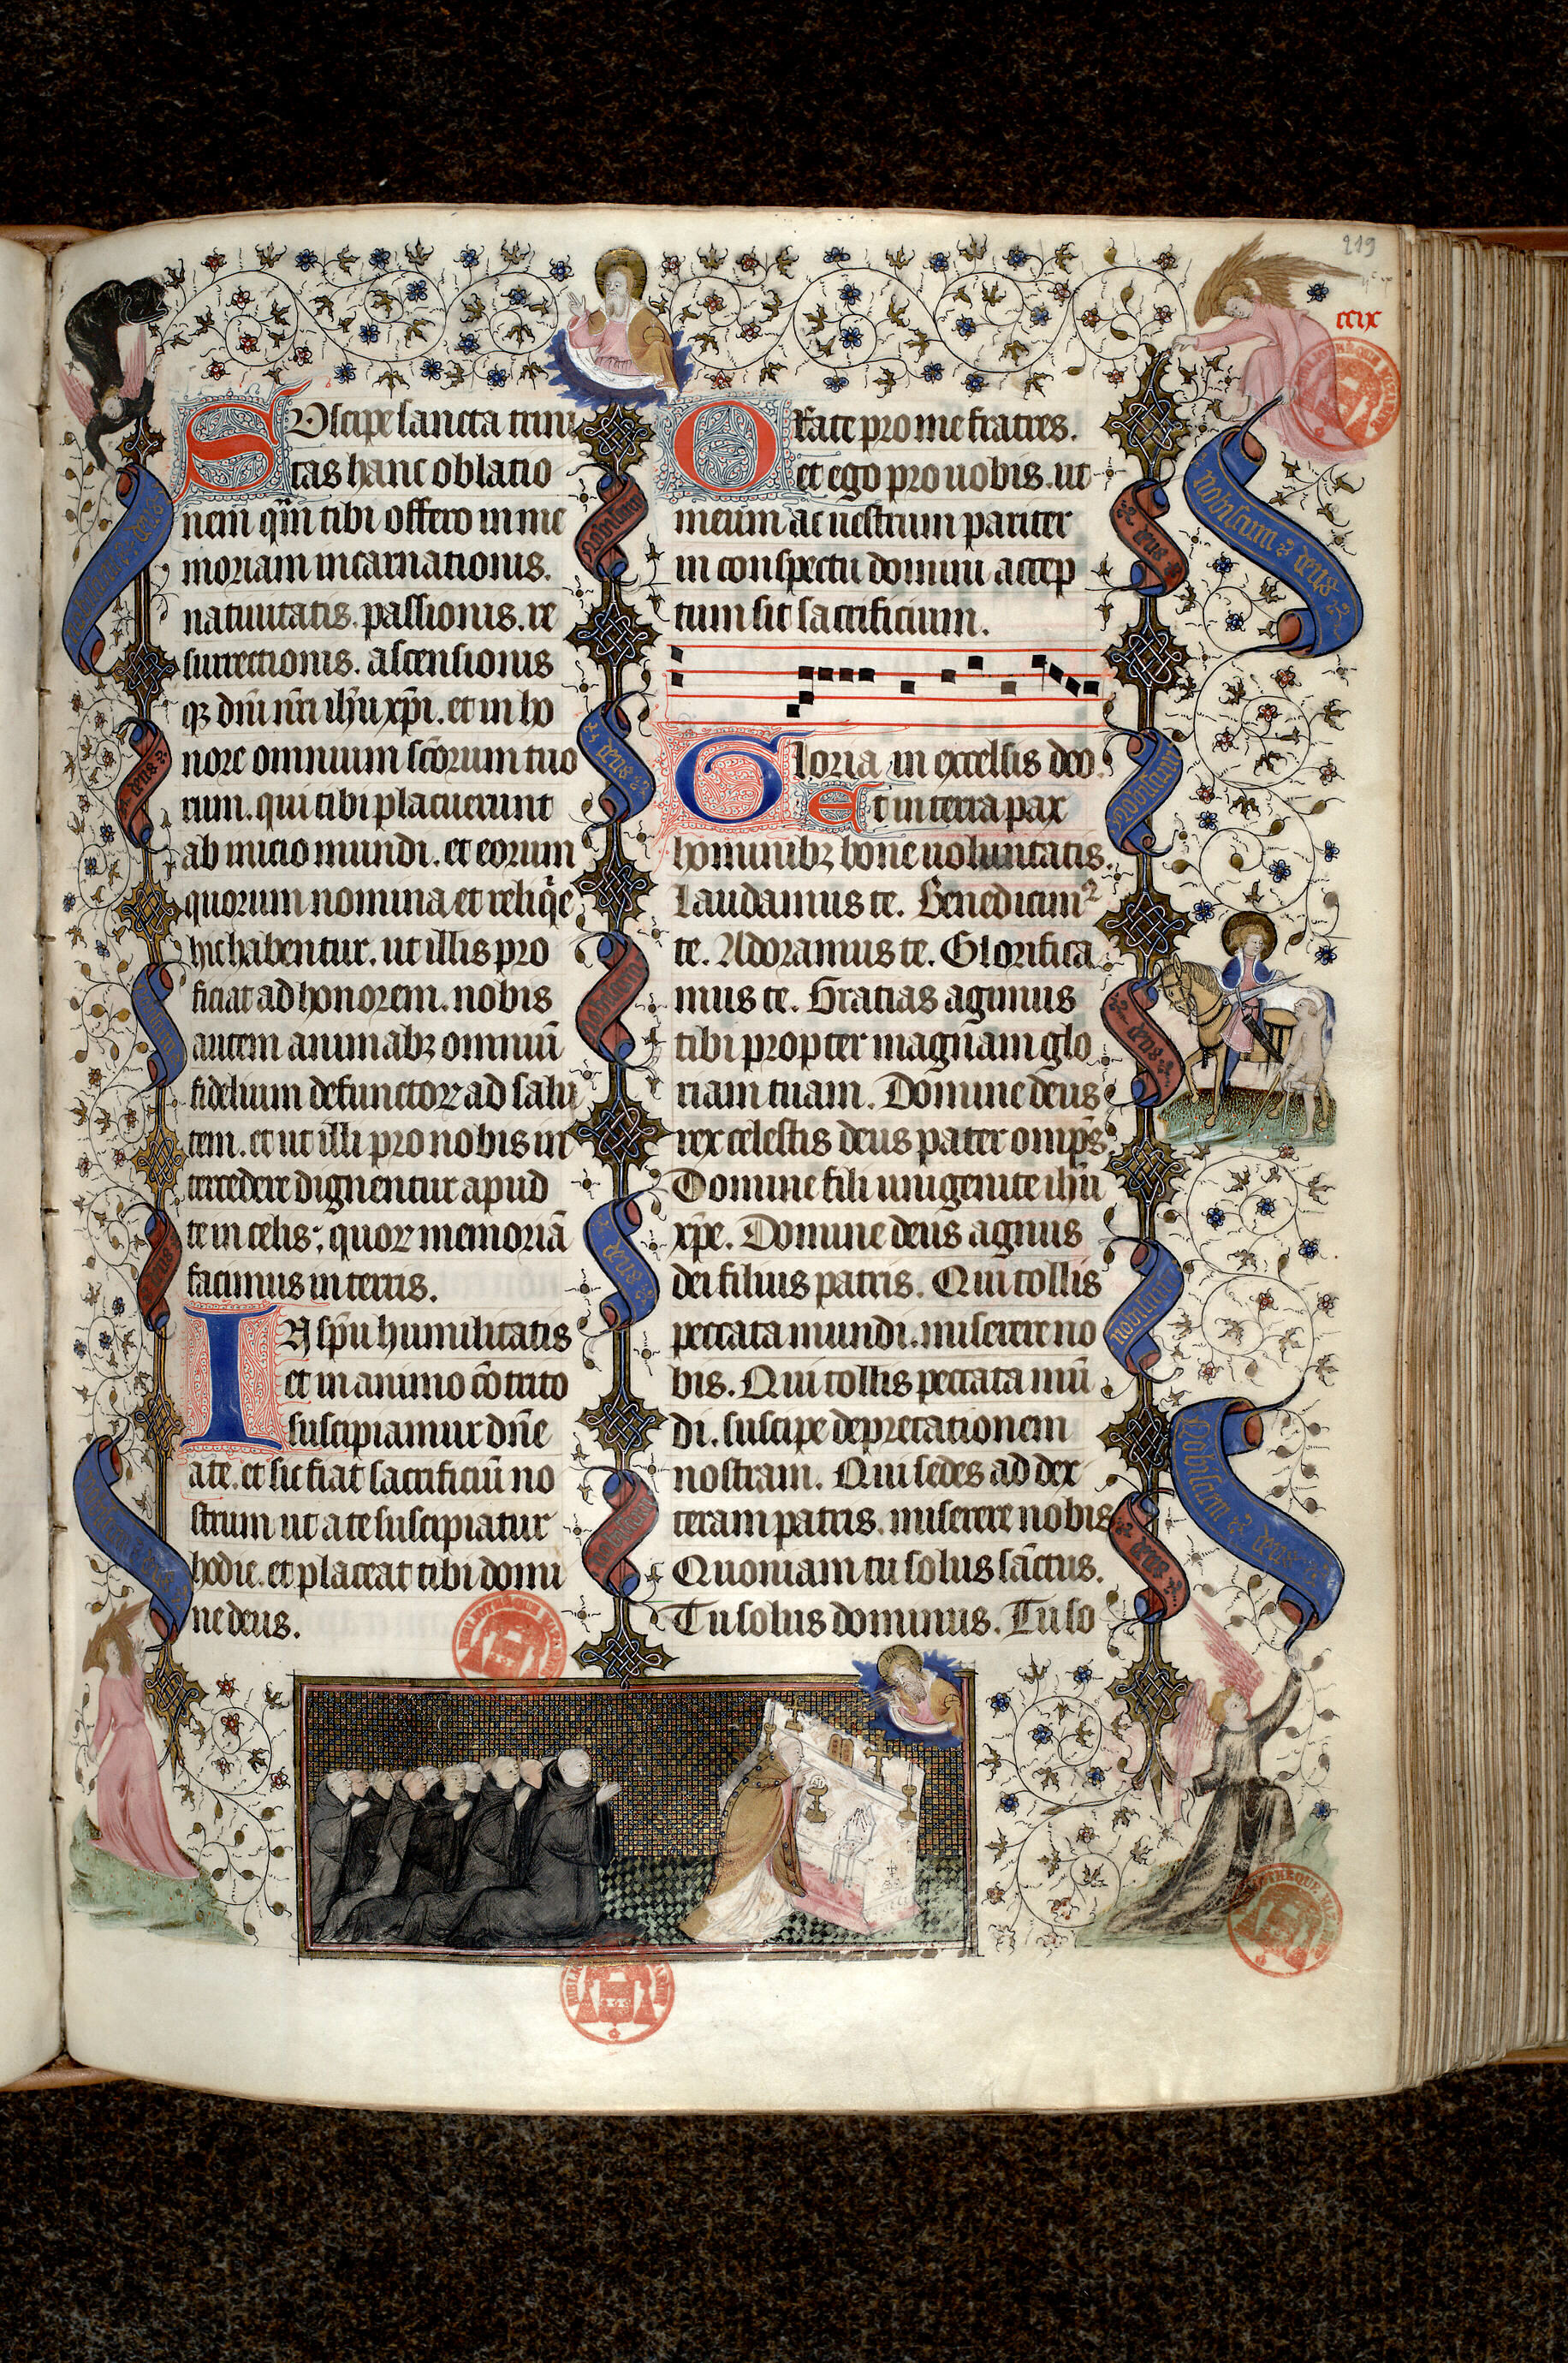 219
ccix
SUscipe sancta trini
tas hanc oblatio
nem qm̄ tibi offero in me
moriam incarnationis.
natiuitatis. passionis. re
surrectionis. ascensionis
qꝫ dn̄i nr̄i ih̄u xp̄i. et in ho
nore omnium sc̄orum tuo
rum. qui tibi placuerunt
ab inicio mundi. et eorum
quorum nomina et reliq̄e
hic habentur. ut illis pro
ficiat ad honorem. nobis
autem animabꝫ omniū
fidelium defunctoꝝ ad salu
tem. et ut illi pro nobis in
tercedere dignentur apud
te in celis; quoꝝ memoriā
facimus in terris.
IN sp̄u humilitatis
et in animo cōtrito
suscipiamur dn̄e
a te. et sic fiat sacrificiū no
strum ut a te suscipiatur
hodie. et placeat tibi domi
ne deus.
ORate pro me fratres.
et ego pro uobis. ut
meum ac uestrum pariter
in conspectu domini accep
tum sit sacrificium.
Gloria in excelsis deo.
Et in terra pax
hominibꝫ bone uoluntatis.
Laudamus te. Benedicimꝰ
te. Adoramus te. Glorifica
mus te. Gratias agimus
tibi propter magnam glo
riam tuam. Domine deus
rex celestis deus pater omp̄s
Domine fili unigenite ih̄u
xp̄e. Domine deus agnus
dei filius patris. Qui tollis
peccata mundi. miserere no
bis. Qui tollis peccata mū
di. suscipe deprecationem
nostram. Qui sedes ad dex
teram patris. miserere nobis
Quoniam tu solus sāctus.
Tu solus dominus. Tu so
nobiscum deus
deus
nobiscum
deus
nobiscum
deus
nobiscum
deus
nobiscum
deus
nobiscum
deus
nobiscum deus